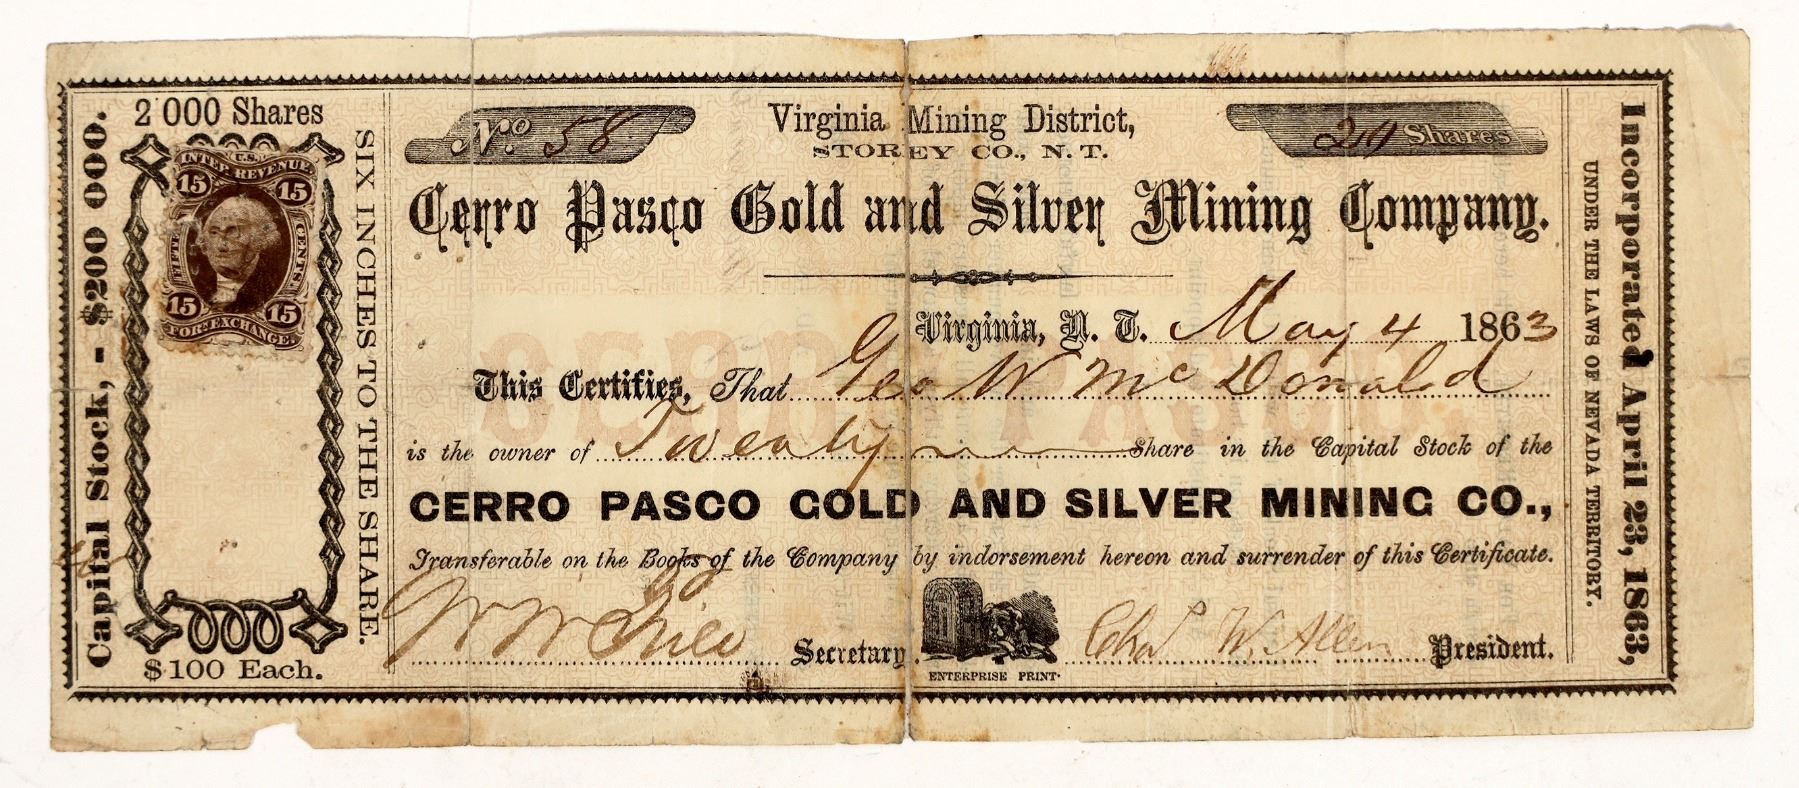 Capital Stock, - $200 000.
2 000 Shares
U.S.
INTER. REVENUE
15 15
FIFTEEN CENTS.
15 15
FOR EXCHANGE
$100 Each.
SIX INCHES TO THE SHARE.
No. 58
Virginia Mining District,
STOREY CO., N. T.
Shares
Cerro Pasco Gold and Silver Mining Company.
Virginia, N. T. May 4 1863
This Certifies, That Geo W McDonald
is the owner of Twenty Share in the Capital Stock of the
CERRO PASCO GOLD AND SILVER MINING CO.,
Transferable on the Books of the Company by indorsement hereon and surrender of this Certificate.
Secretary.
Chas W. Allen President.
ENTERPRISE PRINT.
CERRO PASCO.
UNDER THE LAWS OF NEVADA TERRITORY.
Incorporated April 23, 1863,